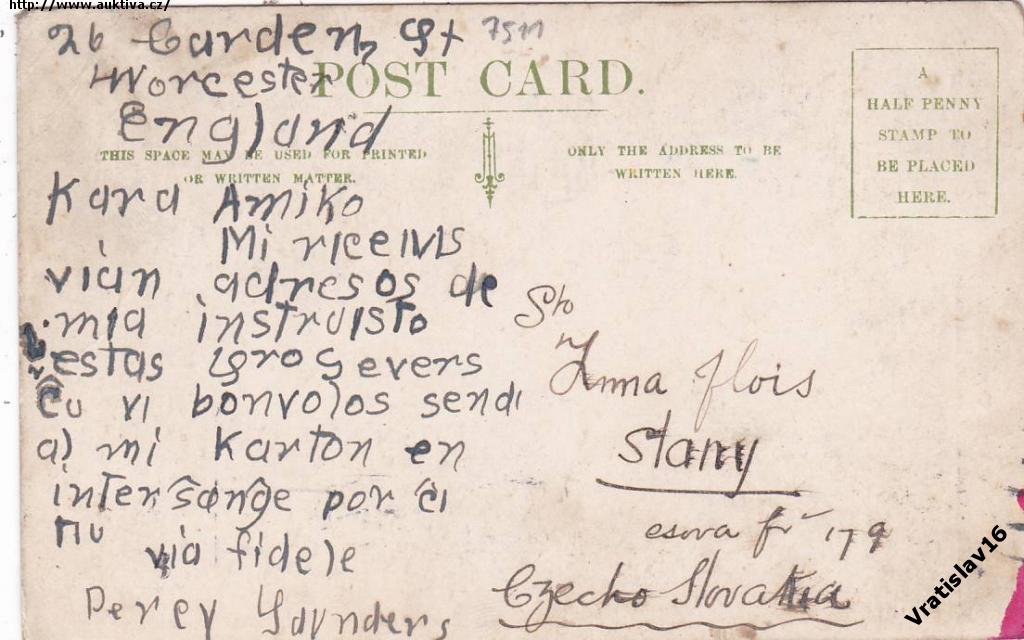 http://www.auktiva.cz/
26 Garden St 7511
Worcester
England
POST CARD.
THIS SPACE MAY BE USED FOR PRINTED
OR WRITTEN MATTER.
ONLY THE ADDRESS TO BE
WRITTEN HERE.
A
HALF PENNY
STAMP TO
BE PLACED
HERE.
Kara Amiko
Mi riceivis
vian adresos de
mia instruisto
estas
Ĉu vi bonvolos sendi
al mi Karton en
interŝanĝe por ĉi
tiu
via fidele
Percy Saunders
Sto
Anna Flois
Stany
esova 179
Czecho Slovakia
Vratislav16